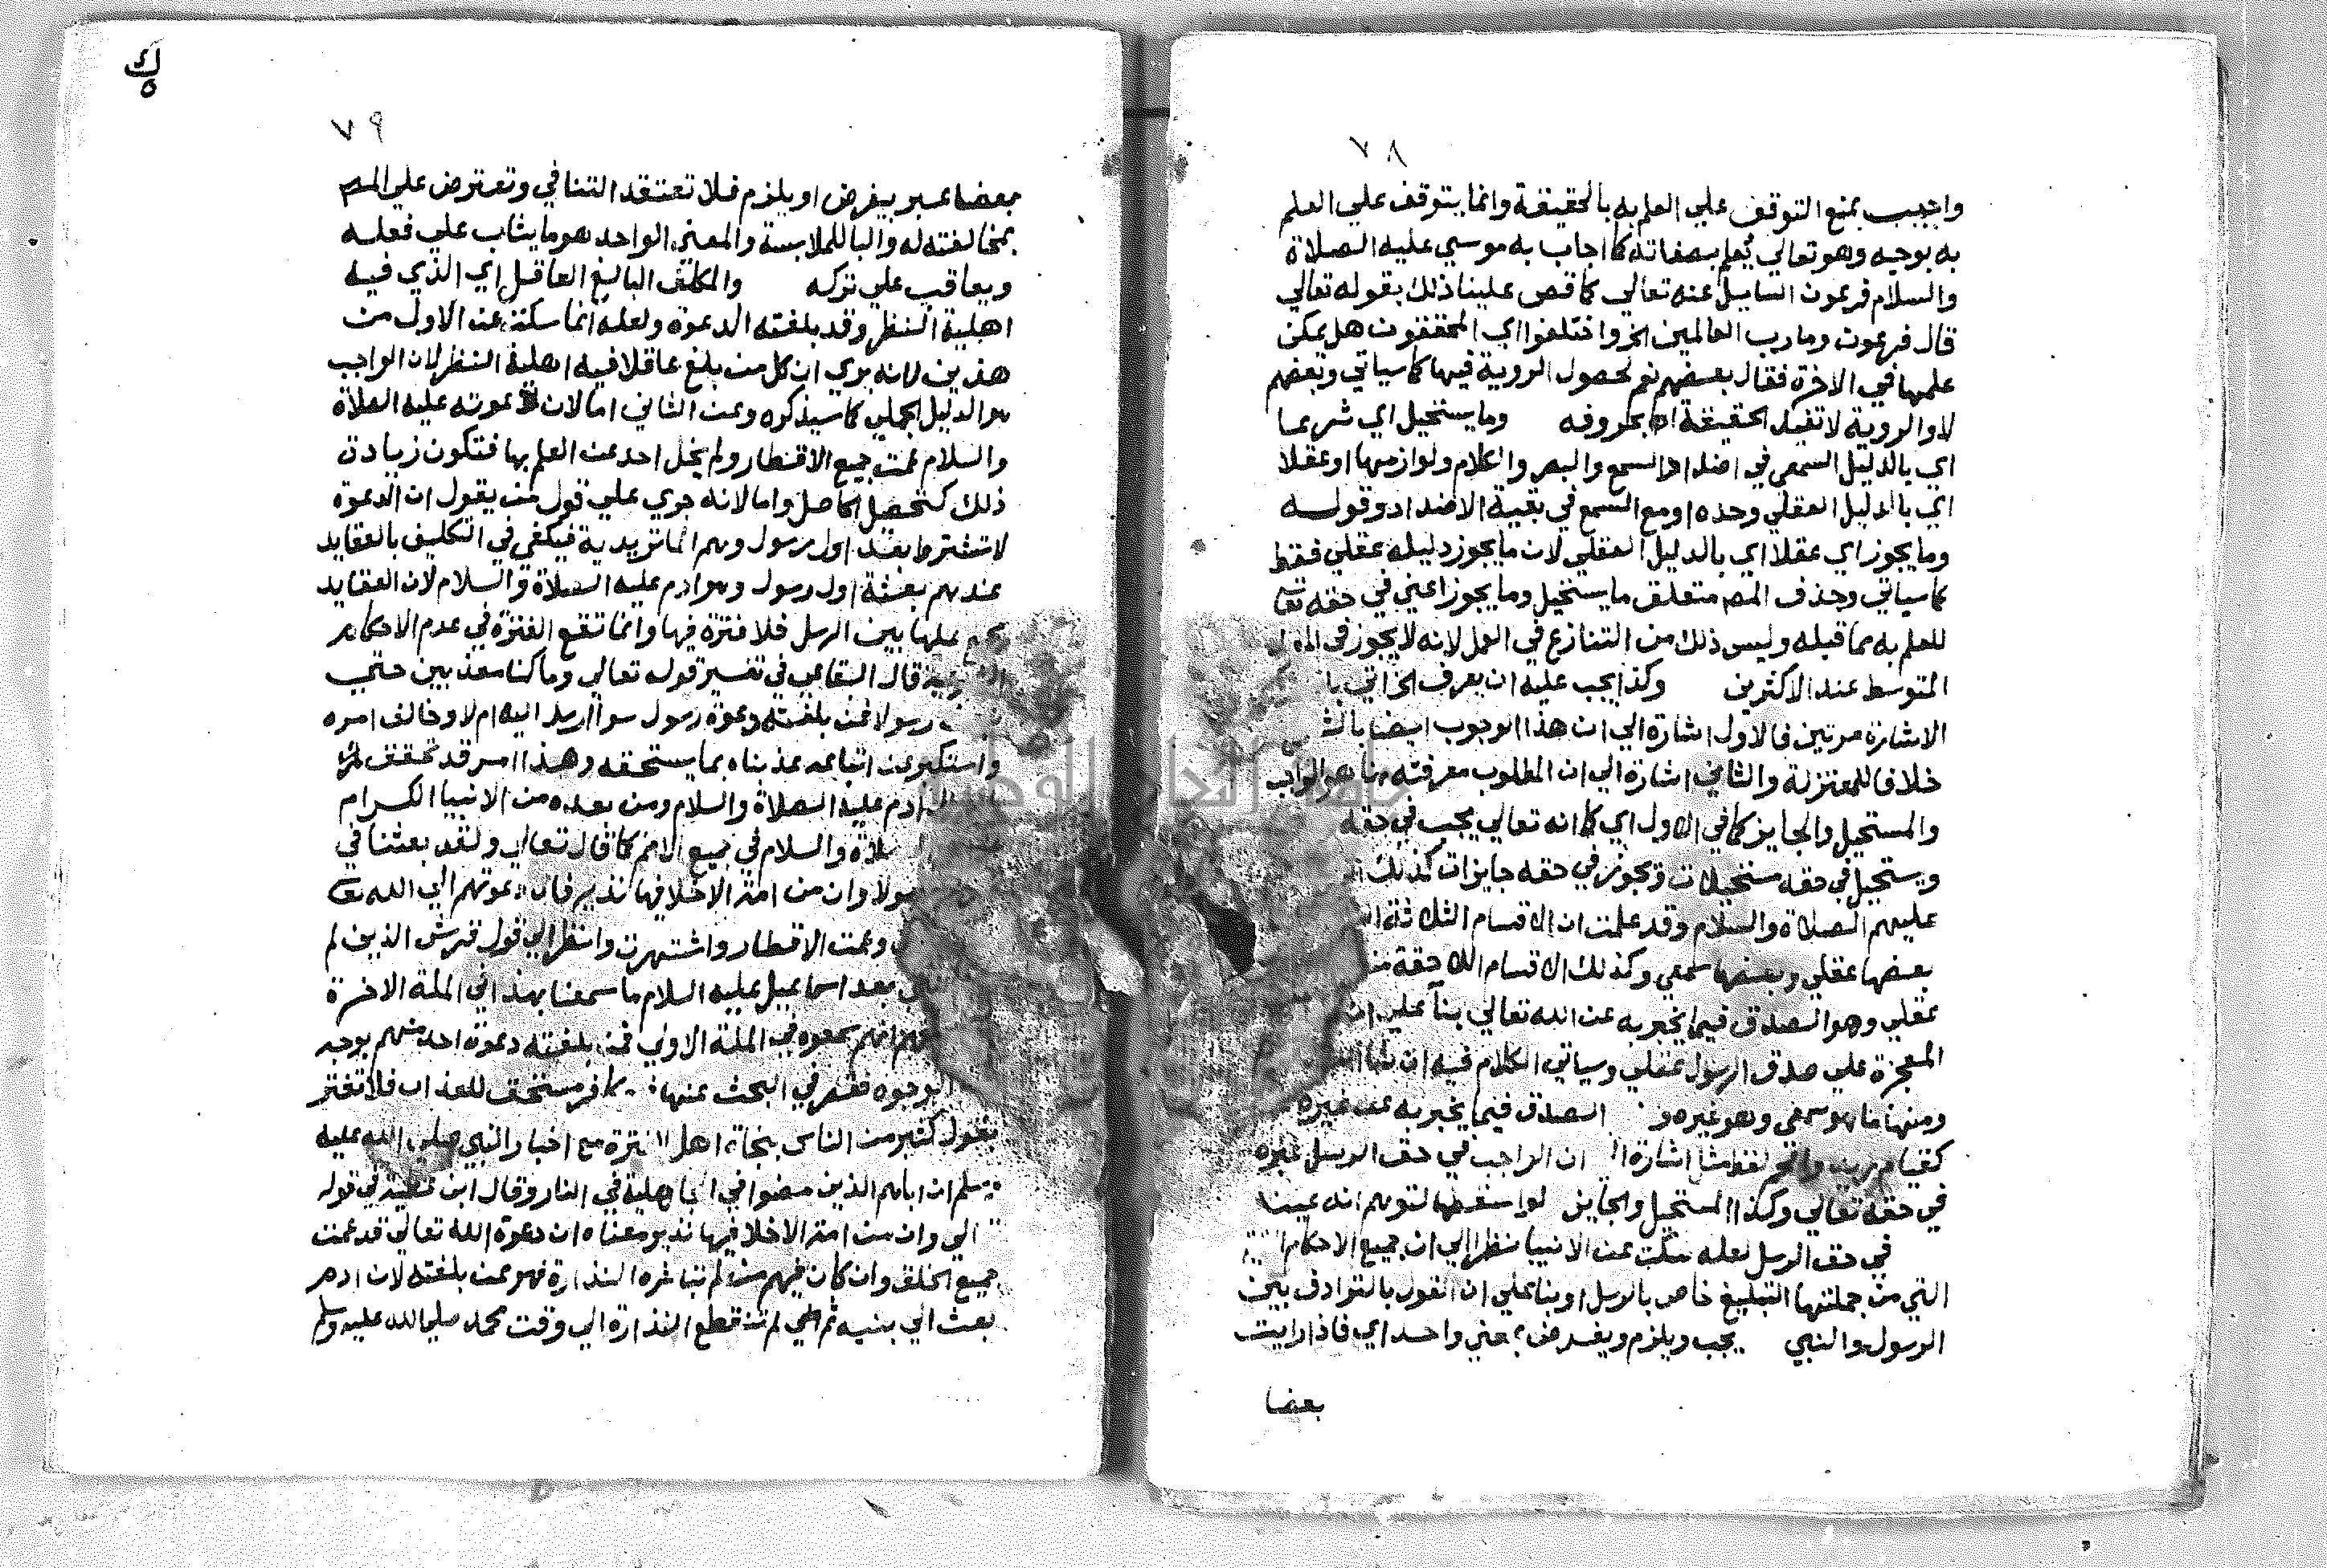 ٧٨
واجيب بمنع التوقف علي العلم به بالحقيقة وانما يتوقف علي العلم
به بوجيه وهو تعالي يعلم بصفاته كما اجاب به موسي عليه الصلاة
والسلام فرعون السايل عنه تعالي كما قص علينا ذلك بقوله تعالي
قال فرعون وما رب العالمين الخ واختلفوا اي المحققون هل يمكن
علمها في الاخرة فقال بعضهم نعم لحصول الروية فيها كما سياتي وبعضهم
لا والروية لا تفيد الحقيقة اه بحروفه وما يستحيل اي شرعا
اي بالدليل السمعي في اضداد السمع والبصر والكلام ولوازمها او عقلا
اي بالدليل العقلي وحده او مع السمع في بقية الاضداد وقوله
وما يجوز اي عقلا اي بالدليل العقلي لان ما يجوز دليله عقلي فقط
كما سياتي وحذف المص متعلق ما يستحيل وما يجوز اعني في حقه تعا
للعلم به مما قبله وليس ذلك من التنازع في العمل لانه لا يجوز في
المتوسط عند الاكثرين وكذا يجب عليه ان يعرف الخ اتي
الاشارة مرتين فالاول اشارة الي ان هذا الوجوب ايضا
خلافا للمعتزلة والثاني اشارة الي ان المطلوب معرفته هو الواجب
والمستحيل والجايز كما في الاول اي كما انه تعالي يجب في حقه
ويستحيل في حقه مستحيلات ويجوز في حقه جايزات كذلك
عليهم الصلاة والسلام وقد علمت ان الاقسام الثلاثة
بعضها عقلي وبعضها سمعي وكذلك الاقسام اللاحقة
عقلي وهو الصدق فيما يخبر به عن الله تعالي بنآ علي ان
المعجزة علي صدق الرسول عقلي وسياتي الكلام فيه ان شا الله
ومنها ما هو سمعي وهو غيره و الصدق فيما يخبر به عن غيره
كقيام زيد اشارة ان الواجب في حق الرسل غيره
في حقه تعالي وكذا المستحيل والجايز لو اسقطها لتوهم انه عينا
في حق الرسل لعله سكت عن الانبيا نظرا الي ان جميع الاحكام
التي من جملتها التبليغ خاص بالرسل او بنا علي ان القول بالترادف بين
الرسول والنبي يجب ويلزم ويفرض بمعني واحد اي فاذا رايت
بعضا
ك
٥
٧٩
بعضا عبر بيفرض او يلزم فلا تعتقد التنافي وتعترض علي المص
بمخالفته له والبا للملابسة والمعني الواحد هو ما يثاب علي فعله
ويعاقب علي تركه والمكلف البالغ العاقل اي الذي فيه
اهلية النظر وقد بلغته الدعوة ولعله انما سكت عن الاول من
هذين لانه يري ان كل من بلغ عاقلا فيه اهلية النظر لان الواجب
هو الدليل الجملي كما سيذكره وعن الثاني اما لان دعوته عليه الصلاة
والسلام عمت جميع الاقطار ولم يخل احد عن العلم بها فتكون زيادة
ذلك كتحصيل الحاصل واما لانه جري علي قول من يقول ان الدعوة
لا تشترط بعد اول رسول وهم الماتريدية فيكفي في التكليف بالعقايد
عندهم بعثة اول رسول وهو ادم عليه الصلاة والسلام لان العقايد
عليها بين الرسل فلا فترة فيها وانما تقع الفترة في عدم الاحكام
قال البقاعي في تفسير قوله تعالي وما كنا معذبين حتي
رسولا فمن بلغته دعوة رسول سوا ارسل اليه ام لا وخالف امره
واستكبر عن اتباعه عذبناه بما يستحقه وهذا امر قد تحقق
ادم عليه الصلاة والسلام ومن بعده من الانبيا الكرام
والسلام في جميع الامم كما قال تعالي ولقد بعثنا في
وان من امة الا خلا فيها نذير فان دعوتهم الي الله تعا
وعمت الاقطار واشتهرت وانظر الي قول قريش الذين لم
بعد اسماعيل عليه السلام ما سمعنا بهذا في الملة الاخرة
انهم سمعوه في الملة الاولي فمن بلغته دعوة احد منهم بوجه
الوجوه فقصر في البحث عنها كافر مستحق للعذاب فلا تغتر
بقول كثير من الناس بنجاة اهل الفترة مع اخبار النبي صلي الله عليه
وسلم ان اباهم الذين مضوا في الجاهلية في النار وقال ابن عطية في قوله
الي وان من امة الا خلا فيها نذير معناه ان دعوة الله تعالي قد عمت
جميع الخلق وان كان فيهم من لم تباشره النذارة فهو ممن بلغته لان ادم
بعث الي بنيه ثم لم تنقطع النذارة الي وقت محمد صلي الله عليه وسلم